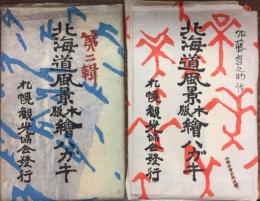 第二輯
北海道風景木版繪ハガキ
札幌觀光協会發行
加藤哲之助作
北海道風景木版繪ハガキ
札幌觀光協会發行